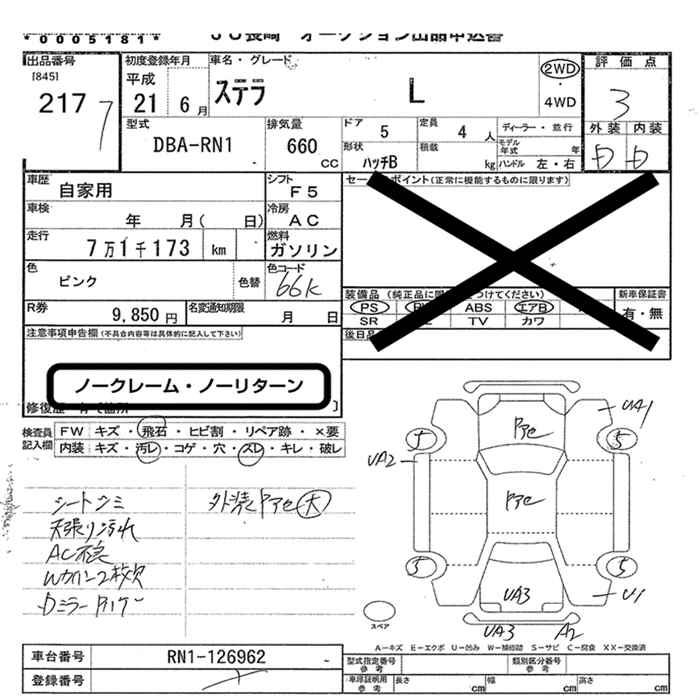 *0005181*
JU長崎 オークション出品申込書
出品番号
[845]
217
7
初度登録年月
平成
21 6月
車名・グレード
ステラ L
2WD
・
4WD
評価点
3
外装 内装
D D
型式
DBA-RN1
排気量
660
CC
ドア
5
定員
4 人
ディーラー・並行
モデル年式 年
形状
ハッチB
積載
kg
ハンドル 左・右
車歴
自家用
シフト
F5
車検
年 月( 日)
冷房
AC
走行
7万1千173 km
燃料
ガソリン
色
ピンク
色替
色コード
66K
R券
9,850円
名変通知期限
月 日
セールスポイント(正常に機能するものに限ります)
装備品
PS ABS エアB
SR TV カワ
新車保証書
有・無
後日品
注意事項申告欄(不具合内容等は具体的に記入して下さい)
ノークレーム・ノーリターン
修復歴
検査員
記入欄
FW キズ・飛石・ヒビ割・リペア跡・×要
内装 キズ・汚レ・コゲ・穴・スレ・キレ・破レ
シートシミ
天張り汚れ
AC不良
外装
大
UA1
UA2
5 5
5 5
UA3
U1
UA3
A2
スペア
A-キズ E-エクボ U-凹み W-補修跡 S-サビ C-腐食 XX-交換済
車台番号
RN1-126962
登録番号
型式指定番号
参考
類別区分番号
参考
車庫証明用
参考
長さ cm 幅 cm 高さ cm